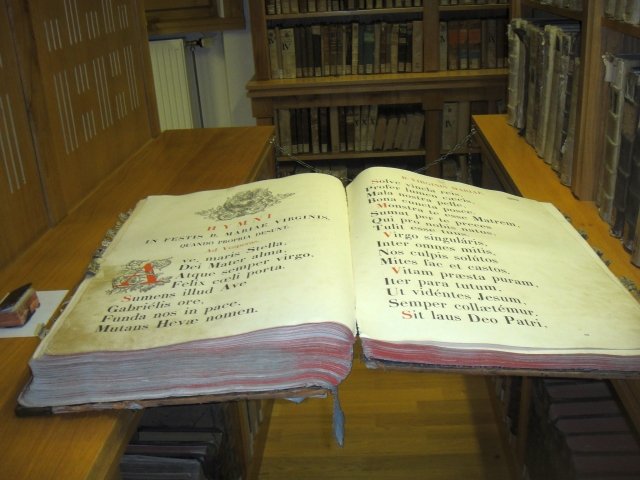 HYMNI
IN FESTIS B. MARIAE VIRGINIS,
QUANDO PROPRIA DESUNT.
Ad Vesperas
Ave, maris Stella,
Dei Mater alma,
Atque semper virgo,
Felix cœli porta.
Sumens illud Ave
Gabriélis ore,
Funda nos in pace,
Mutans Hevæ nomen.
B. VIRGINIS MARIAE
Solve vincla reis,
Profer lumen cæcis,
Mala nostra pelle,
Bona cuncta posce.
Monstra te esse Matrem,
Sumat per te preces
Qui pro nobis natus
Tulit esse tuus.
Virgo singuláris,
Inter omnes mitis,
Nos culpis solútos
Mites fac et castos.
Vitam præsta puram,
Iter para tutum,
Ut vidéntes Jesum,
Semper collætémur.
Sit laus Deo Patri,